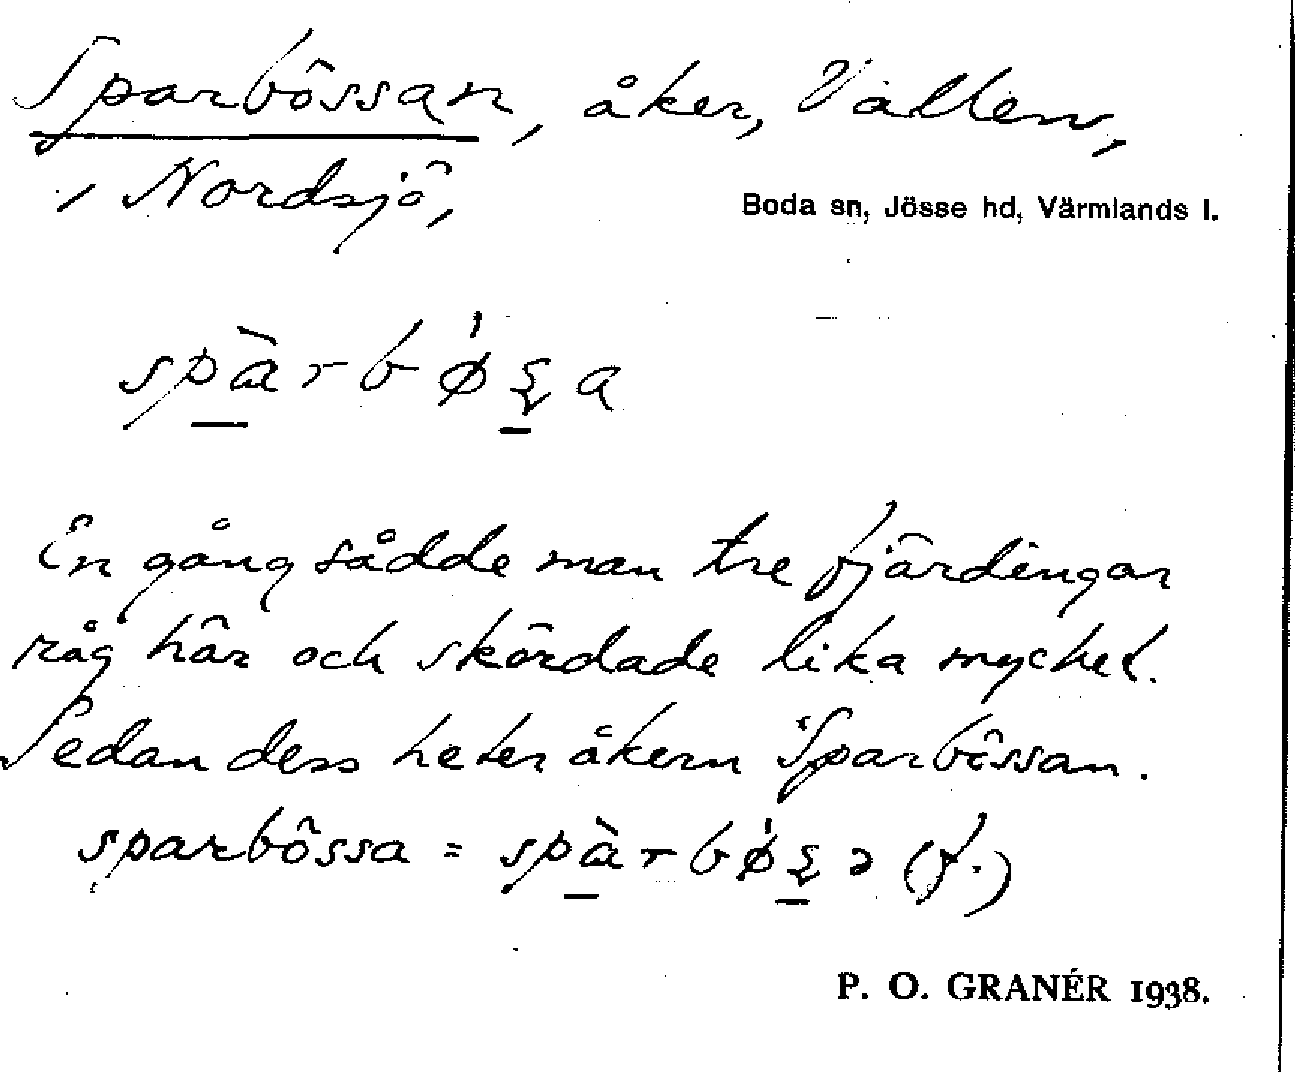 Sparbössan, åker, Vallen,
, Nordsjö,
Boda sn, Jösse hd, Värmlands l.
En gång sådde man tre fjärdingar
råg här och skördade lika mycket.
Sedan dess heter åkern Sparbössan.
sparbössa = (f.)
P. O. GRANÉR 1938.